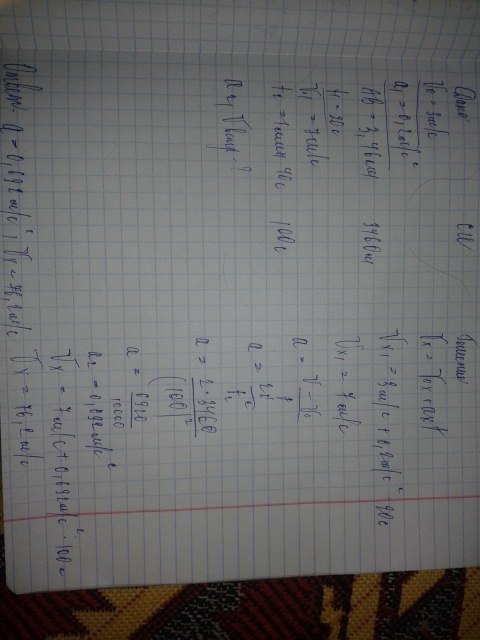 Дано:
V₀ = 3м/с
a₁ = 0,2м/с²
AB = 3,46км
t₁ = 20с
V₁ = 7м/с
t₂ = 1мин 40с
a₂, Vконц - ?
СИ
3460м
100с
Решение
Vx = V₀x + axt
Vx₁ = 3м/с + 0,2м/с² · 20с
Vx₁ = 7м/с
a = V - V₀ / t
a = 2S / t²
a = 2·3460 / (100)²
a = 6920 / 10000
a₂ = 0,692м/с²
Vx = 7м/с + 0,692м/с² · 100с
Vx = 76,2м/с
Ответ: a = 0,692м/с²; Vx = 76,2м/с